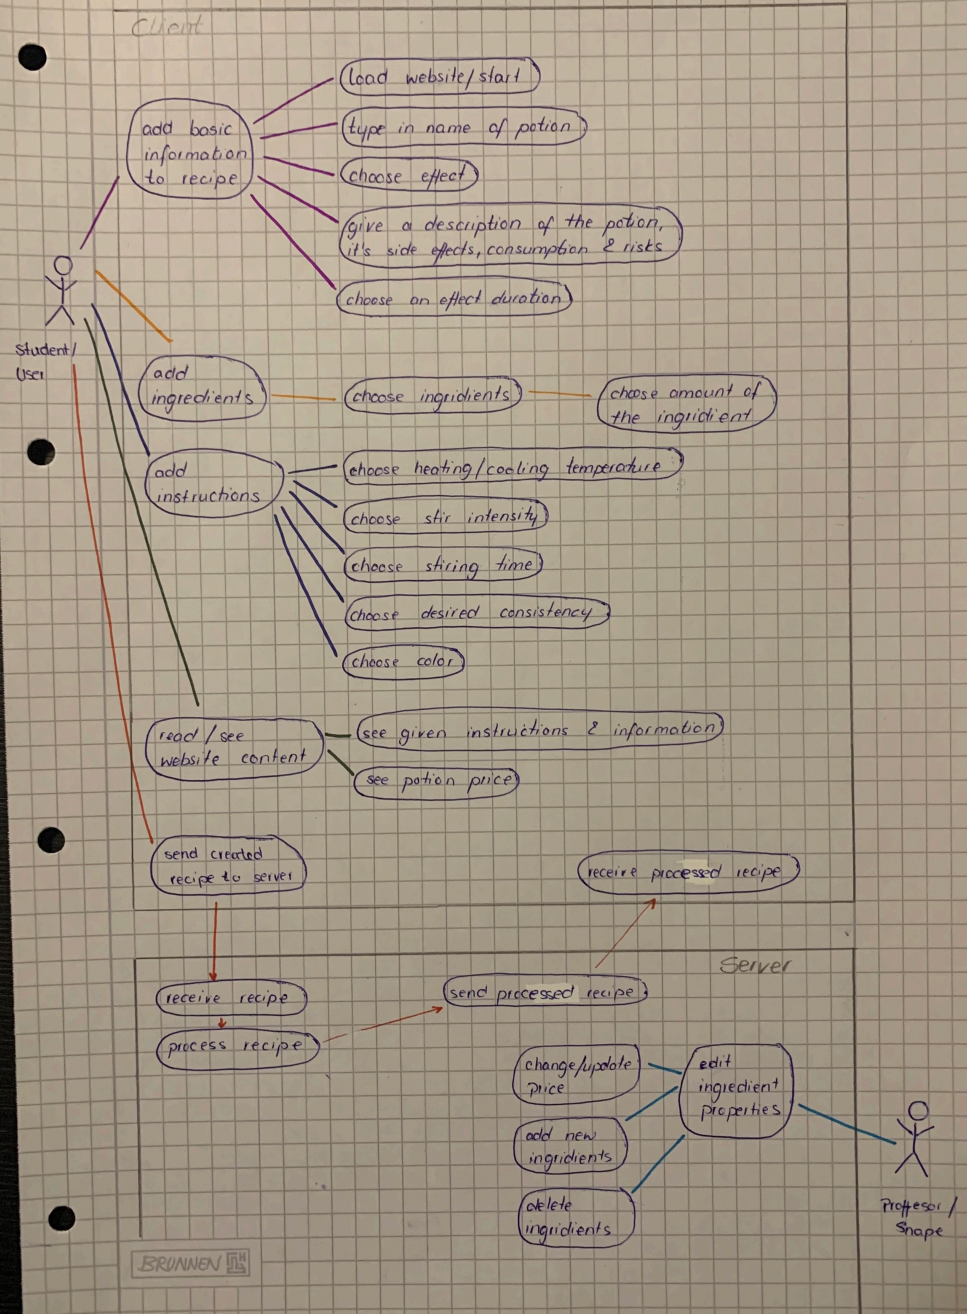 Client
load website/start
add basic
information
to recipe
type in name of potion
choose effect
give a description of the potion,
it's side effects, consumption & risks
choose an effect duration
Student/
User
add
ingredients
choose ingridients
choose amount of
the ingridient
add
instructions
choose heating/cooling temperature
choose stir intensity
choose stiring time
choose desired consistency
choose color
read/see
website content
see given instructions & information
see potion price
send created
recipe to server
receive processed recipe
Server
receive recipe
send processed recipe
process recipe
change/update
price
edit
ingredient
properties
add new
ingridients
delete
ingridients
Proffesor/
Snape
BRUNNEN